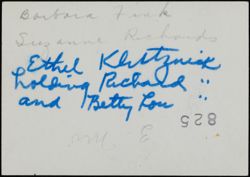 Barbara Fink
Suzanne Richards
Ethel Klutznick
holding Richard "
and Betty Lou "
825